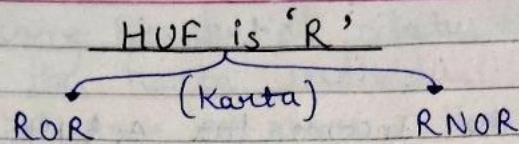 HUF is 'R'
(Karta)
ROR RNOR